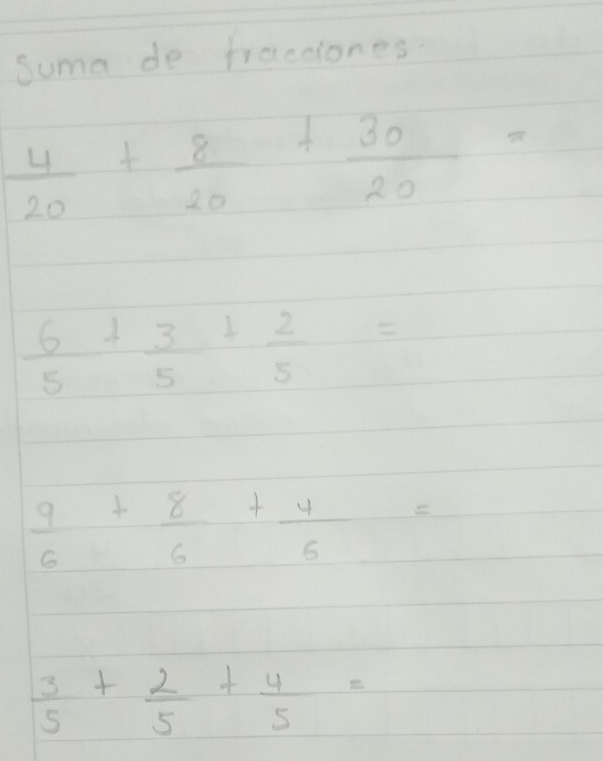 Suma de fracciones
4/20 + 8/20 + 30/20 =
6/5 + 3/5 + 2/5 =
9/6 + 8/6 + 4/6 =
3/5 + 2/5 + 4/5 =